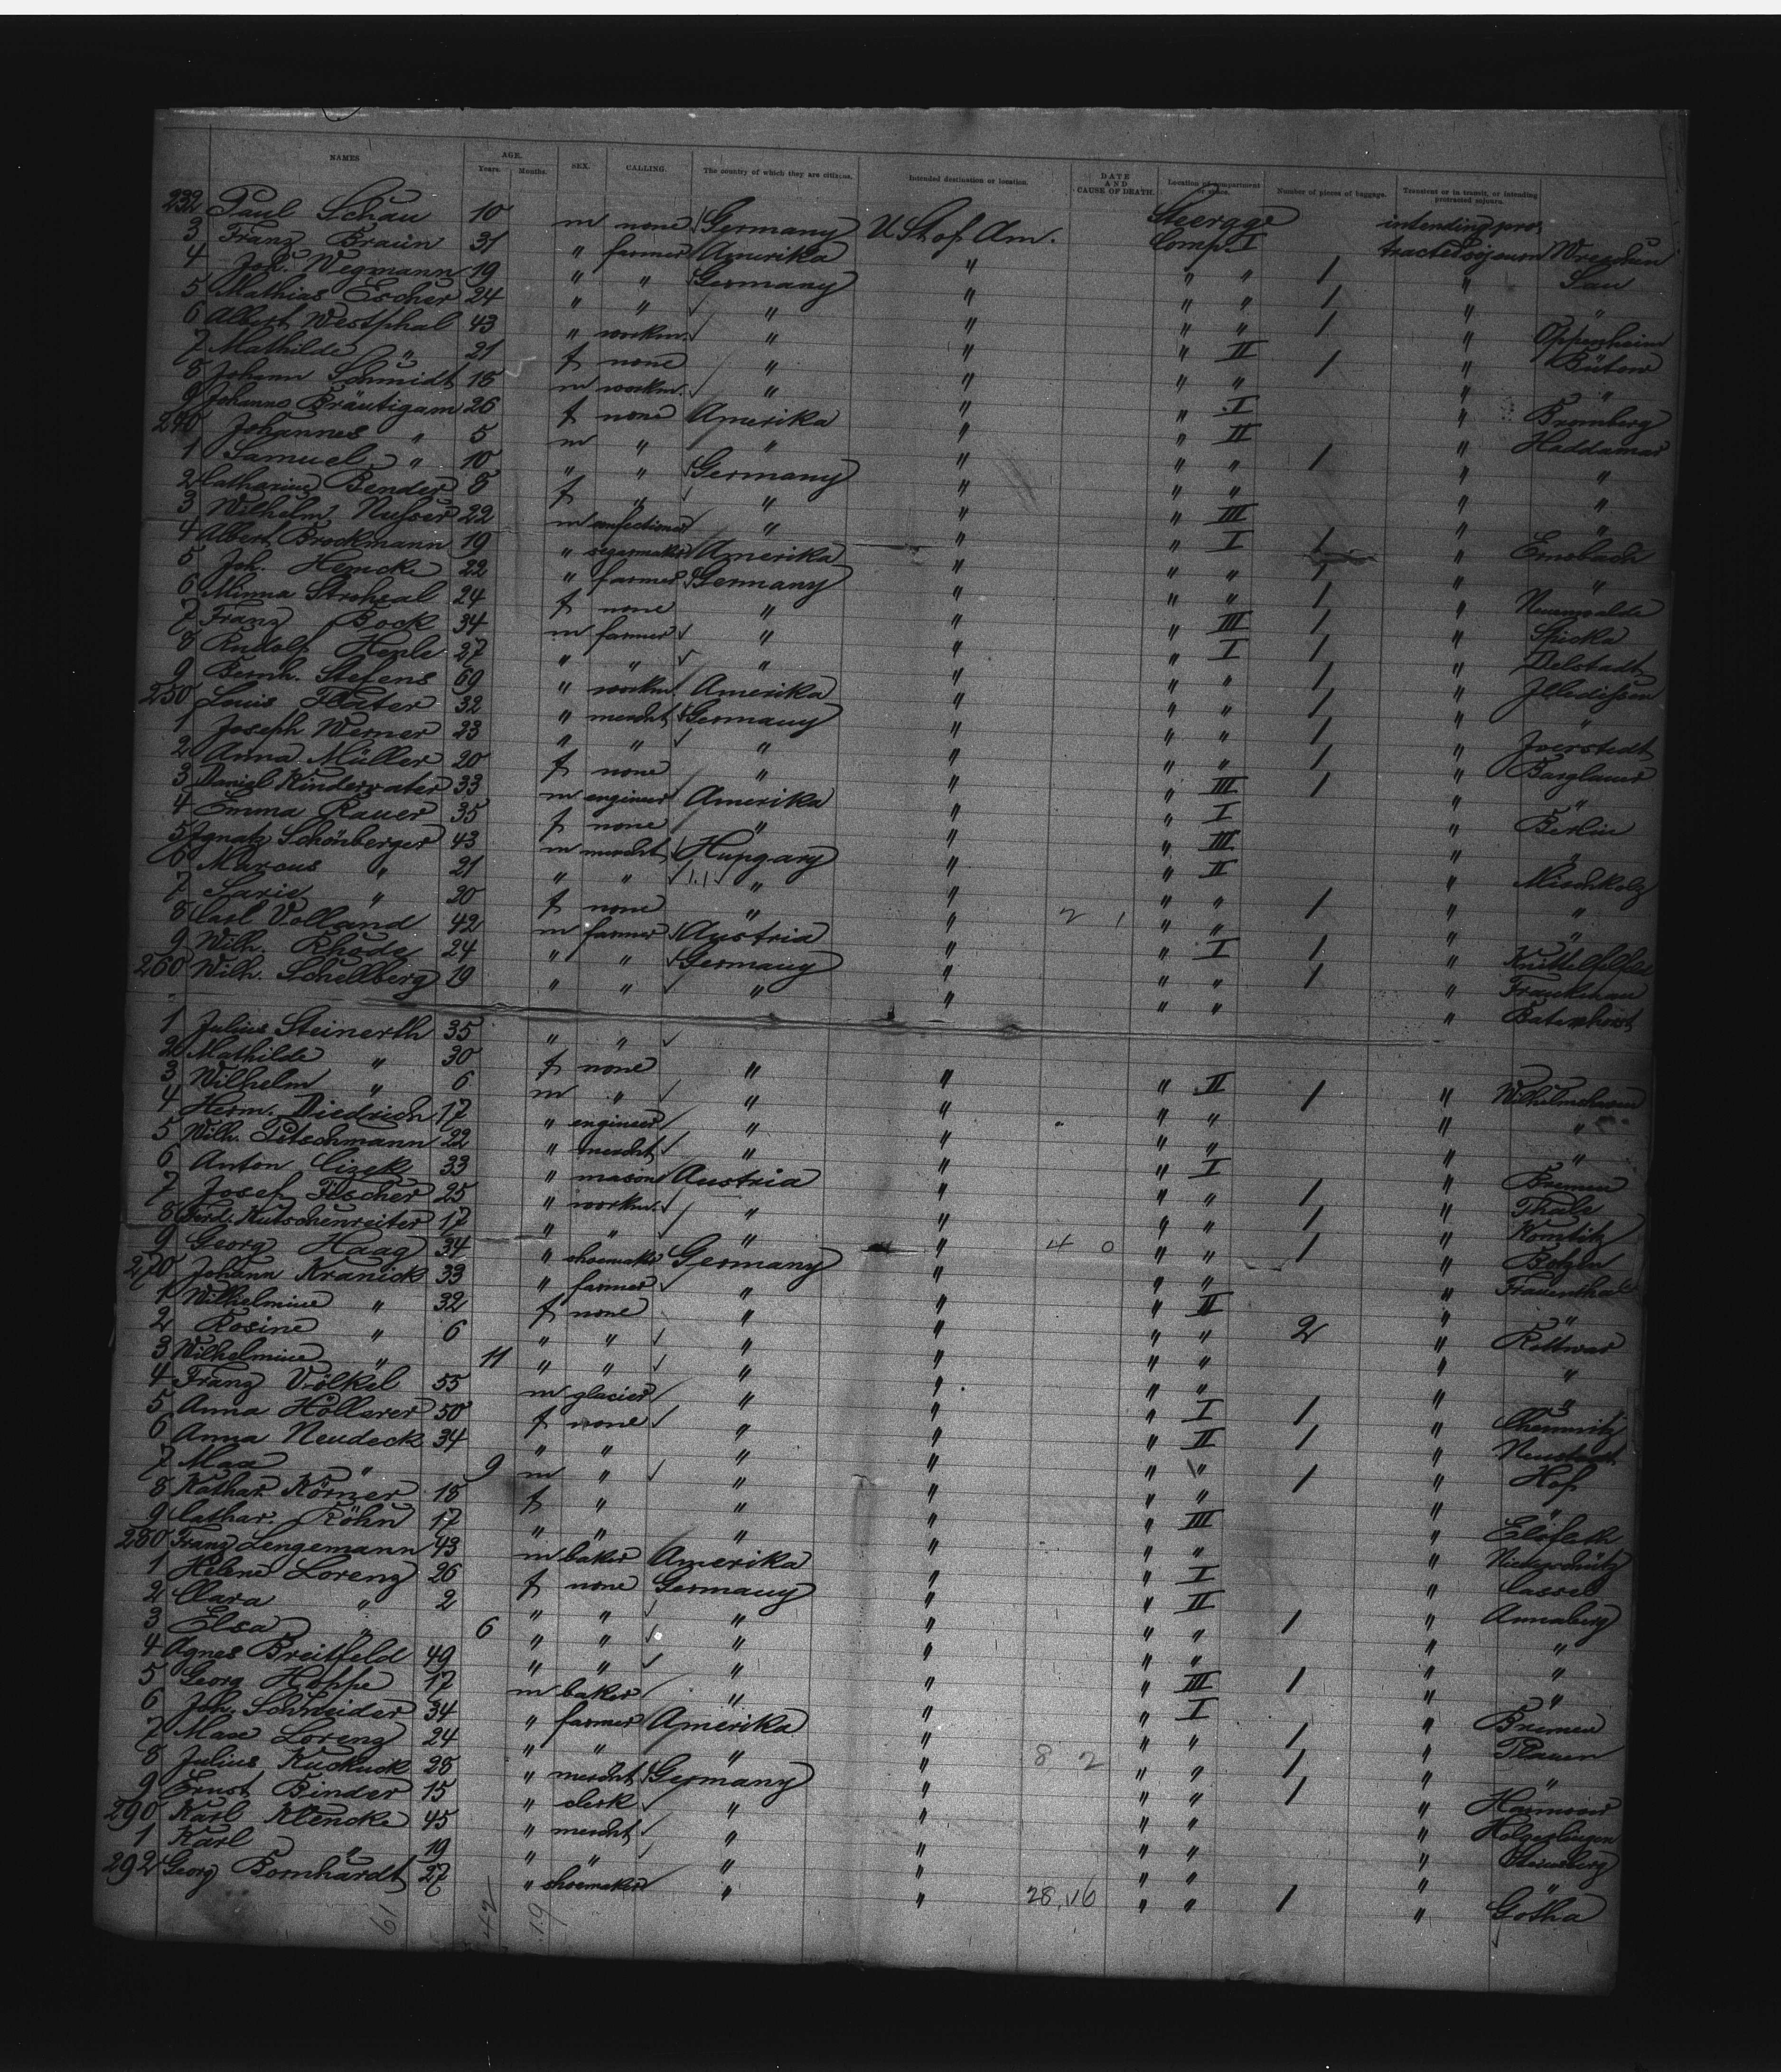 NAMES AGE. Years. Months. SEX. CALLING. The country of which they are citizens. Intended destination or location. DATE AND CAUSE OF DEATH. Location of compartment or space. Number of pieces of baggage. Transient or in transit, or intending protracted sojourn.
232 Paul Schau 10 m none Germany U St of Am. Steerage intending pro-
3 Franz Braun 31 " farmer Amerika " Comp. I tracted sojourn
4 Joh. Wegmann 19 " " Germany " " " 1 "
5 Mathias Escher 24 " " " " " " 1 " "
6 Albert Westphal 43 " workm. " " " " 1 " Oppenheim
7 Mathilde " 21 f none " " " II 1 " Bütow
8 Johann Schmidt 18 m workm. " " " " " "
9 Johanna Bräutigam 26 f none Amerika " " I " Bromberg
240 Johannes " 5 m " " " " II " Haddamar
1 Samuel " 10 " " Germany " " " 1 " "
2 Catharine Bender 8 f " " " " " " "
3 Wilhelm 22 m confectioner " " " III " "
4 Albert Brockmann 19 " segarmaker Amerika " " I 1 " Ernsbach
5 Joh. Hencke 22 " farmer Germany " " " 1 " "
6 Minna 24 f none " " " " 1 " Neuenwalde
7 Franz Bock 34 m farmer " " " III 1 " Spieka
8 Rudolf Henle 27 " " " " " I 1 "
9 Bernh. Stefens 69 " workm. Amerika " " " 1 "
250 Louis 32 " mercht Germany " " " 1 " "
1 Joseph Werner 23 " " " " " " 1 "
2 Anna Müller 20 f none " " " " 1 "
3 Daniel Kindervater 33 m engineer Amerika " " III 1 " "
4 Emma Rauer 35 f none " " " I " Berlin
5 Ignatz Schönberger 43 m mercht Hungary " " III " "
6 Marcus " 21 " " " " " II " Mischkolz
7 Sarie " 20 f none " " " " 1 " "
8 Carl Volland 42 m farmer Austria " 2 1 " " " "
9 Wilh. Rhode 24 " " Germany " " I 1 "
260 Wilh. Schellberg 19 " " " " " " 1 "
" " "
1 Julius Steinerth 35 " "
2 Mathilde " 30 f none " " " II 1 " Wilhelmshaven
3 Wilhelm " 6 m " " " " " " "
4 Herm. Diedrich 17 " engineer " " " " " "
5 Wilh. Pitschmann 22 " mercht " " " I " Bremen
6 Anton Cizek 33 " mason Austria " " " 1 " Thale
7 Josef Fischer 25 " workm. " " " " 1 "
8 Ferd. Kutschenreiter 17 " " " " 4 0 " " 1 "
9 Georg Haag 34 " shoemaker Germany " " " " Frauenthal
270 Johann Kranick 33 " farmer " " " II " "
1 Wilhelmine " 32 f none " " " " 2 " Rottwar
2 Rosine " 6 " " " " " " " "
3 Wilhelmine " 11 " " " " " " " "
4 Franz Völkel 55 m glacier " " " I 1 " Chemnitz
5 Anna Hollerer 50 f none " " " II 1 " Neustadt
6 Anna Neudeck 34 " " " " " " 1 " Hof
7 Max " 9 m " " " " " " "
8 Kathar. Körner 18 f " " " " III "
9 Cathar. Röhn 17 " " " " " " "
280 Franz Lengemann 43 m baker Amerika " " I " Cassel
1 Helene Lorenz 26 f none Germany " " II " Annaberg
2 Clara " 2 " " " " " " 1 " "
3 Elsa " 6 " " " " " " " "
4 Agnes Breitfeld 49 " " " " " III 1 " "
5 Georg Hoppe 17 m baker " " " I " Bremen
6 Joh. Schneider 34 " farmer Amerika " " " 1 " Plauen
7 Max Lorenz 24 " " " " 8 2 " " 1 " "
8 Julius Kuckuck 28 " mercht Germany " " " 1 " Hannover
9 Ernst Binder 15 " clerk " " " " "
290 Karl Klencke 45 " mercht " " " " "
1 Karl " 19 " " " " " " " "
292 Georg Bornhardt 27 " shoemaker " " 28,16 " " 1 " Gotha
61 42 19